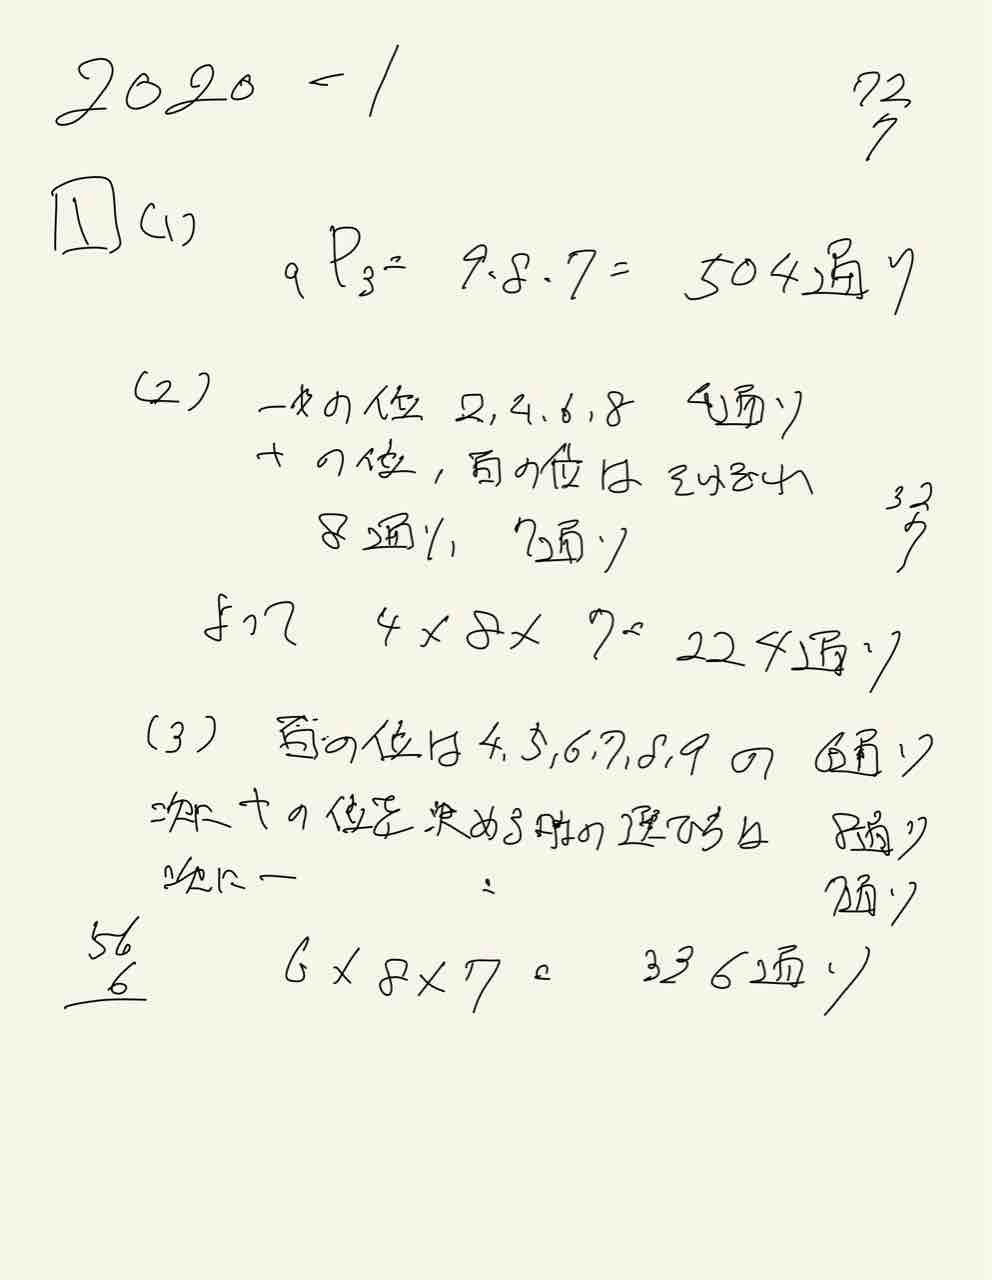 2020-1
72
7
1 (1)
9P3 = 9・8・7 = 504通り
(2) 一の位 2, 4, 6, 8 4通り
十の位, 百の位は それぞれ
32
7
8通り, 7通り
よって 4×8×7= 224通り
(3) 百の位は4, 5, 6, 7, 8, 9 の 6通り
次に十の位を決める時の選び方は 8通り
次に一 : 7通り
56
6
6×8×7= 336通り